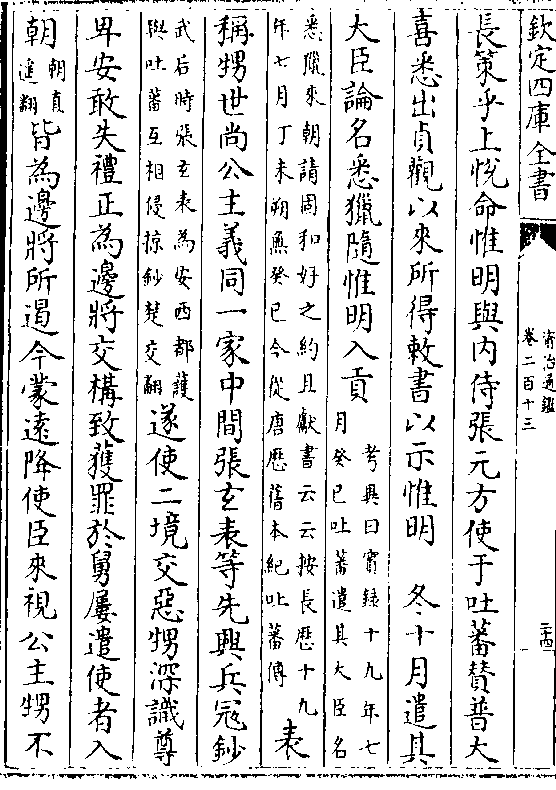 欽定四庫全書
資治通鑑
卷二百十三
二十四
長策乎上悅命惟明與内侍張元方使于吐蕃贊普大
喜悉出貞觀以來所得敕書以示惟明　冬十月遣其
大臣論名悉獵隨惟明入貢
考異曰實録十九年七
月癸巳吐蕃遣其大臣名
悉獵來朝請固和好之約且獻書云云按長歷十九
年七月丁未朔無癸巳今從唐歷舊本紀吐蕃傳
表
稱甥世尚公主義同一家中間張玄表等先興兵冦鈔
武后時張玄表為安西都護
與吐蕃互相侵掠鈔楚交翻
遂使二境交惡甥深識尊
卑安敢失禮正為邊將交構致獲罪於舅屢遣使者入
朝
朝直
遙翻
皆為邊將所遏今蒙遠降使臣來視公主甥不